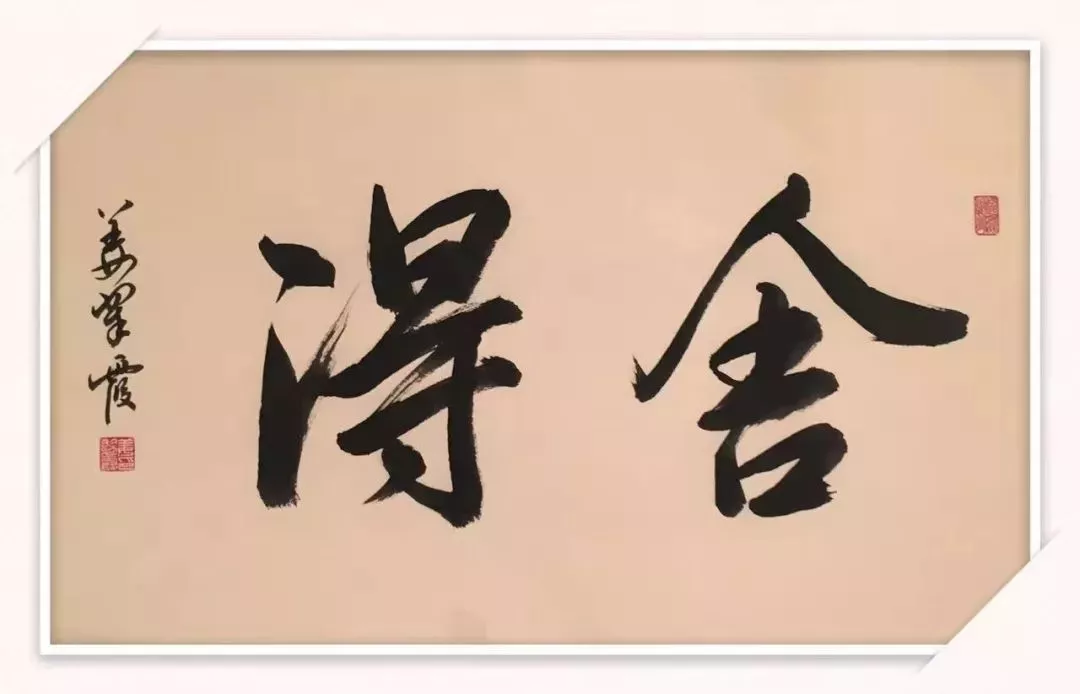 舍得
姜翠霞